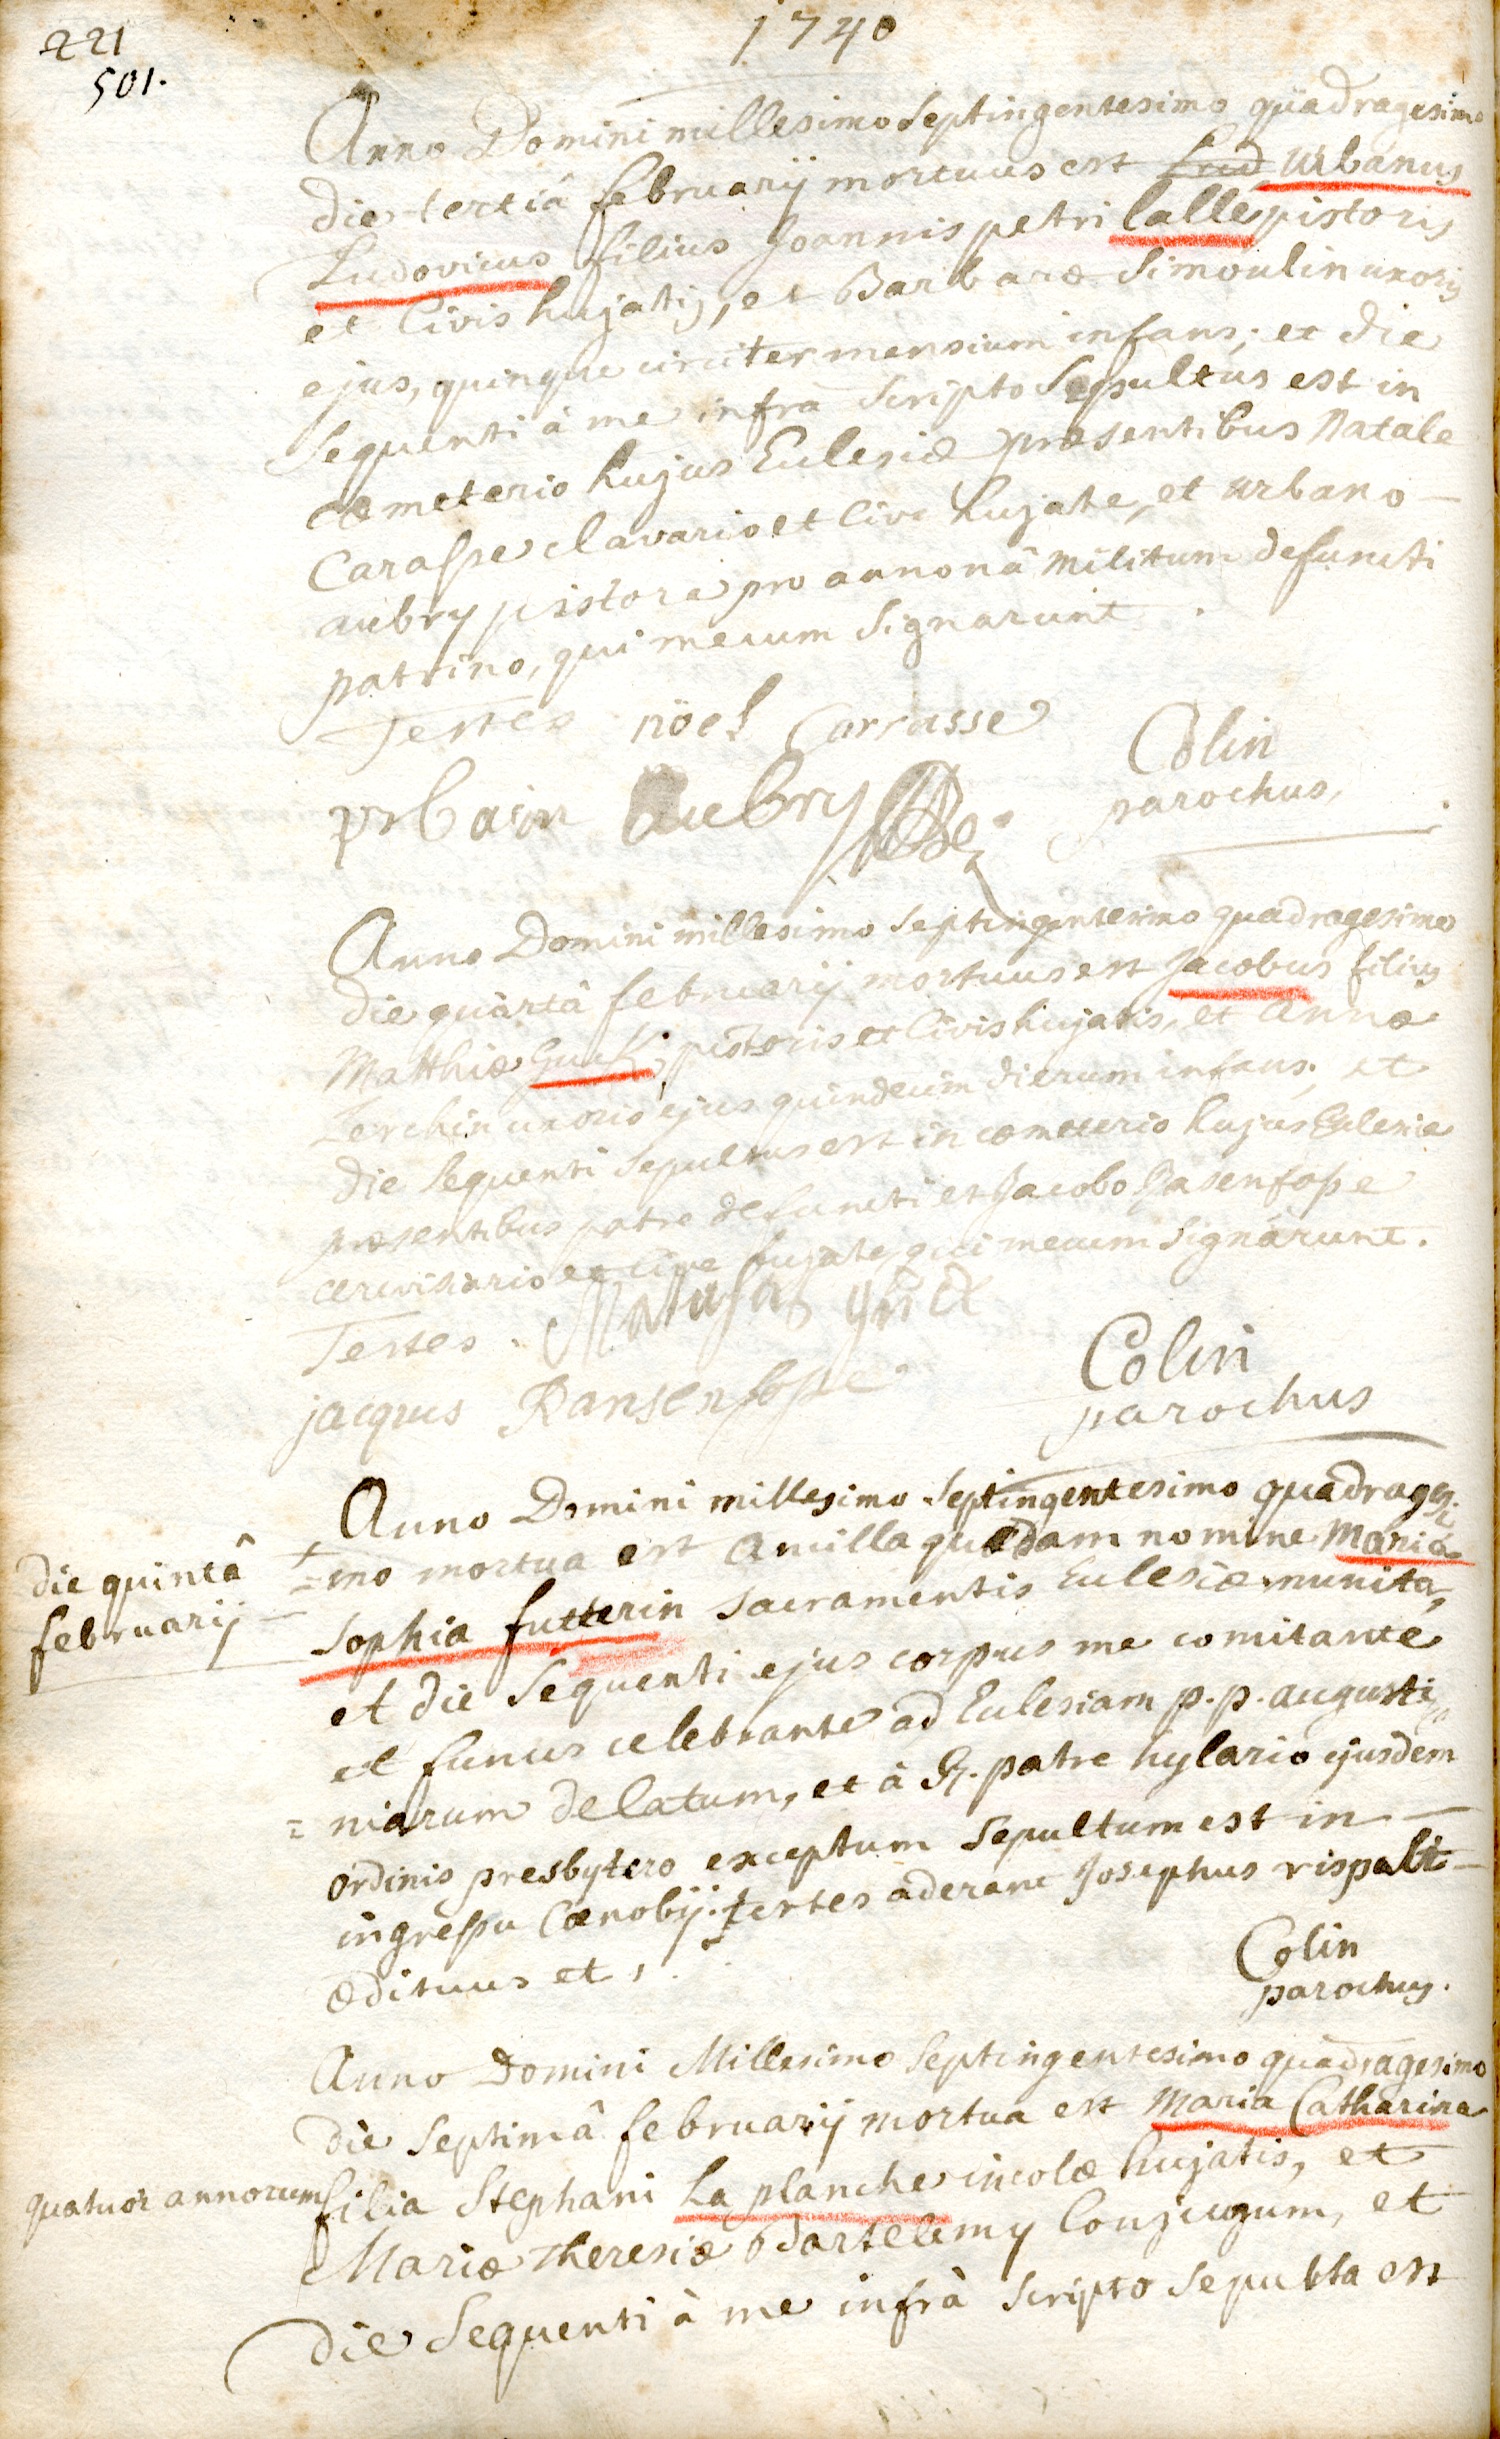 221
501.
1740
Anno Domini millesimo septingentesimo quadragesimo
die tertiâ februarij mortuus est Lud Urbanus
Ludovicus filius Joannis petri lallé pistoris
et Civis hujatis, et Barbaræ Simoulin uxoris
ejus, quinque circiter mensium infans; et die
sequenti à me infrà scripto sepultus est in
cœmeterio hujus Ecclesiæ præsentibus Natale
Carasse clavario et Cive hujate, et urbano
aubry pistore pro annonâ militum defuncti
patrino, qui mecum signarunt.
Testes nöel Carrasse
Colin
parochus,
vrbain Aubry
Anno Domini millesimo septingentesimo quadragesimo
die quartâ februarij mortuus est Jacobus filius
Matthiæ pistoris et Civis hujatis, et Annæ
Lerchin uxoris ejus quindecim dierum infans; et
die sequenti sepultus est in cœmeterio hujus Ecclesiæ
præsentibus patre defuncti et Jacobo Ransenfosse
cervisiario et cive hujate, qui mecum signarunt.
Testes.
jacques Ransenfosse
Colin
parochus
Anno Domini millesimo septingentesimo quadragesi
=mo mortua est Ancilla quædam nomine Maria
die quintâ
februarij
Sophia futterin sacramentis Ecclesiæ munita,
et die sequenti ejus corpus me comitante
et funus celebrante ad Ecclesiam p.p. augusti
=niarum delatum, et à R. patre hylario ejusdem
ordinis presbytero exceptum sepultum est in
ingressu Cœnobij: testes aderant Josephus rispalt
ædituus et,
Colin
parochus.
Anno Domini Millesimo septingentesimo quadragesimo
die septimâ februarij mortua est Maria Catharina
quatuor annorum
filia Stephani La planche incolæ hujatis, et
Mariæ Theresiæ Bartelemy Conjugum, et
die sequenti à me infrà scripto sepulta est